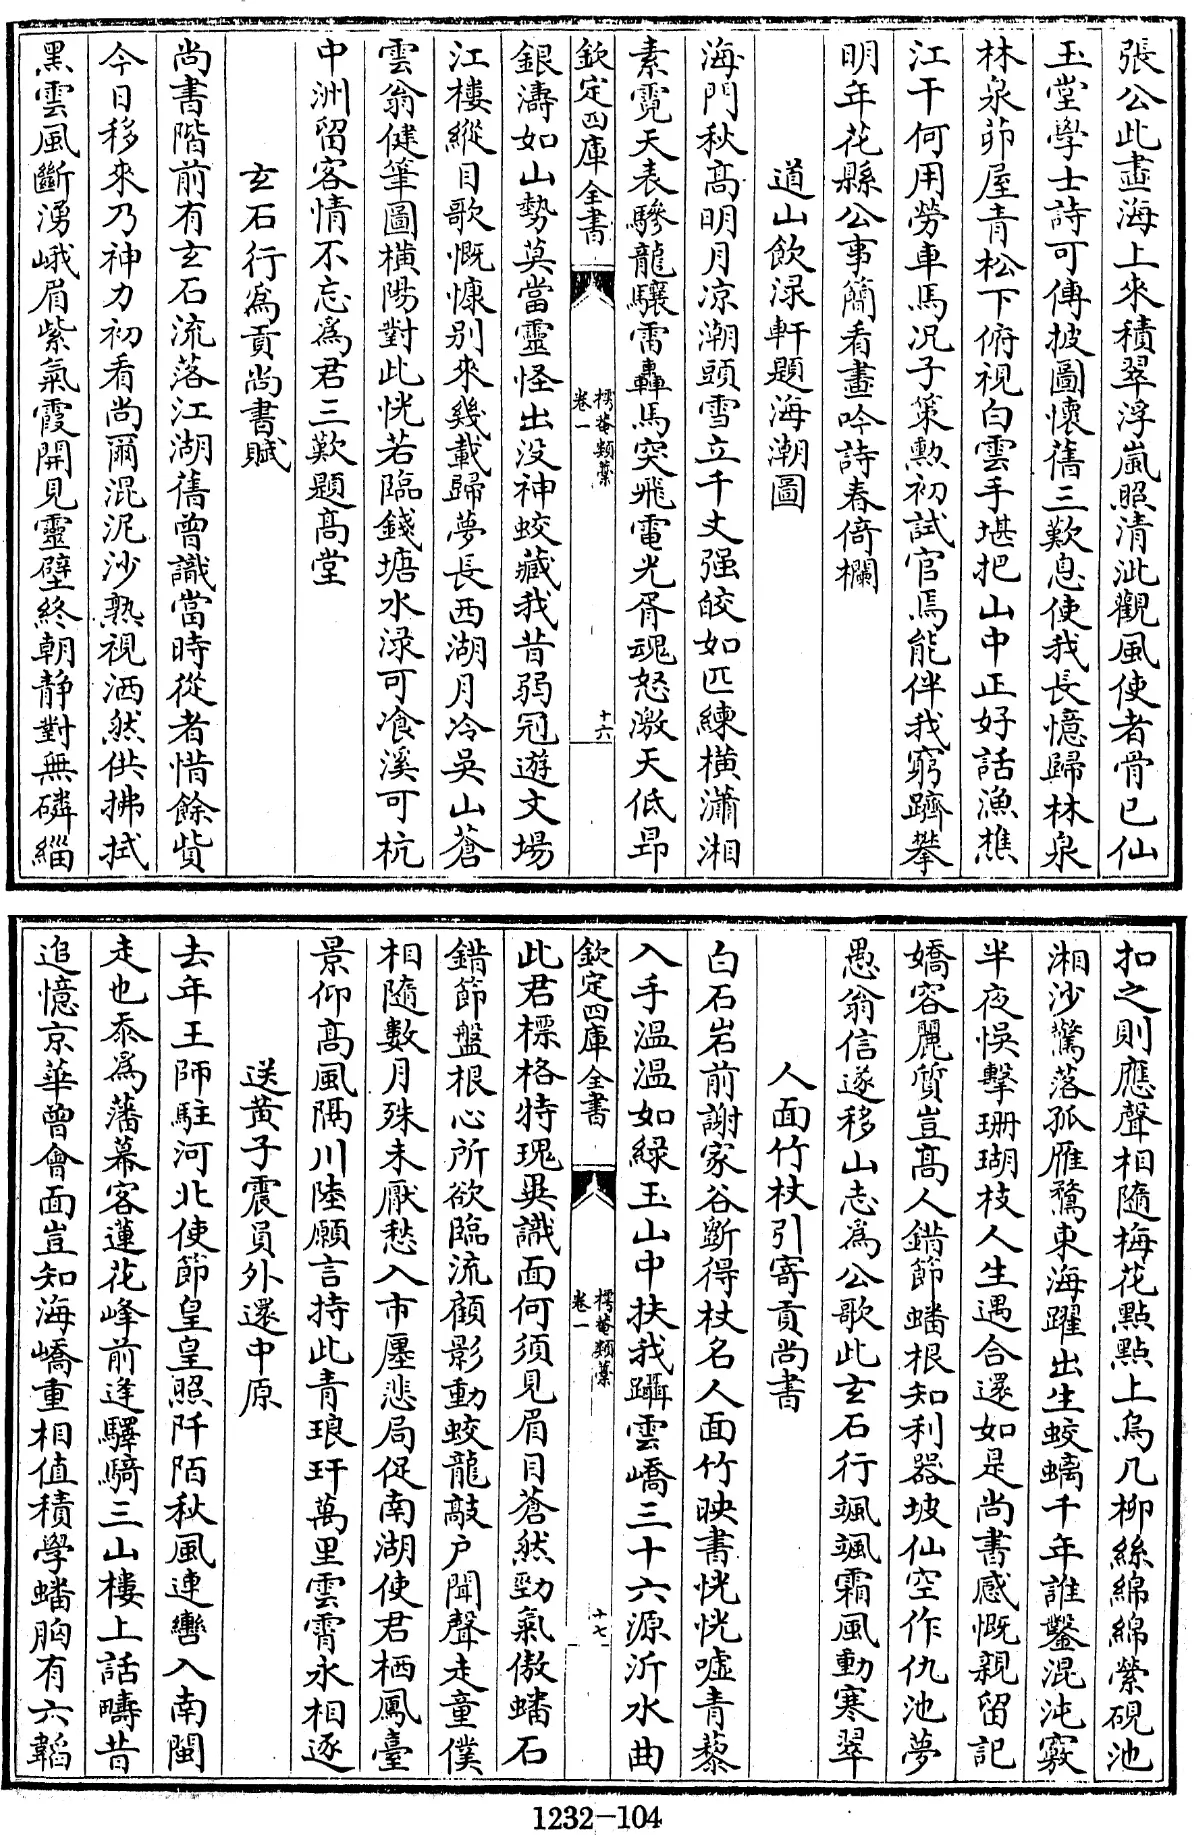 張公此畫海上來積翠浮嵐照清泚觀風使者骨已仙
玉堂學士詩可傳披圖懷舊三歎息使我長憶歸林泉
林泉茆屋青松下俯視白雲手堪把山中正好話漁樵
江干何用勞車馬况子策勲初試官焉能伴我窮躋攀
明年花縣公事簡看畫吟詩春倚欄
道山飲渌軒題海潮圖
海門秋高明月凉潮頭雪立千丈强皎如匹練橫瀟湘
素霓天表驂龍驤雷轟馬突飛電光胥魂怒激天低昻
欽定四庫全書
樗菴類藁
卷一
十六
銀濤如山勢莫當靈怪出没神蛟藏我昔弱冠遊文場
江樓縱目歌慨慷别來幾載歸夢長西湖月冷吳山蒼
雲翁健筆圖橫陽對此恍若臨錢塘水渌可飡溪可杭
中洲留客情不忘爲君三歎題高堂
玄石行爲貢尚書賦
尚書階前有玄石流落江湖舊曾識當時從者惜餘貲
今日移來乃神力初看尚爾混泥沙熟視洒然供拂拭
黑雲風斷湧峨眉紫氣霞開見靈壁終朝静對無磷緇
扣之則應聲相隨梅花點點上烏几柳絲綿綿縈硯池
湘沙驚落孤雁鶩東海躍出生蛟螭千年誰鑿混沌竅
半夜悞擊珊瑚枝人生遇合還如是尚書感慨親留記
嬌容麗質豈髙人錯節蟠根知利器坡仙空作仇池夢
愚翁信遂移山志爲公歌此玄石行颯颯霜風動寒翠
人面竹杖引寄貢尚書
白石岩前謝家谷斵得杖名人面竹映書恍恍嘘青藜
入手温温如緑玉山中扶我躡雲嶠三十六源沂水曲
欽定四庫全書
樗菴類藁
卷一
十七
此君標格特瑰異識面何須見眉目蒼然勁氣傲蟠石
錯節盤根心所欲臨流顧影動蛟龍敲户聞聲走童僕
相隨數月殊未厭愁入市廛悲局促南湖使君栖鳳臺
景仰高風隔川陸願言持此青琅玕萬里雲霄永相逐
送黄子震員外還中原
去年王師駐河北使節皇皇照阡陌秋風連轡入南閩
走也忝爲藩幕客蓮花峰前逢驛騎三山樓上話疇昔
追憶京華曾會面豈知海嶠重相值積學蟠胸有六韜
1232-104